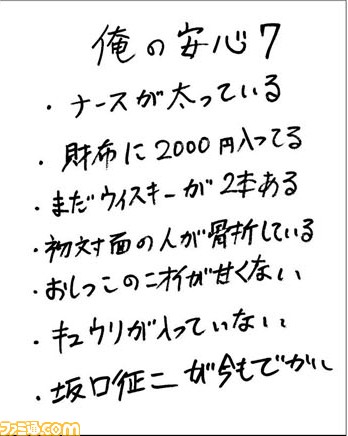 俺の安心7
・ナースが太っている
・財布に2000円入ってる
・まだウイスキーが2本ある
・初対面の人が骨折している
・おしっこのニオイが甘くない
・キュウリが入っていない
・坂口征二が今もでかい
ファミ通.com